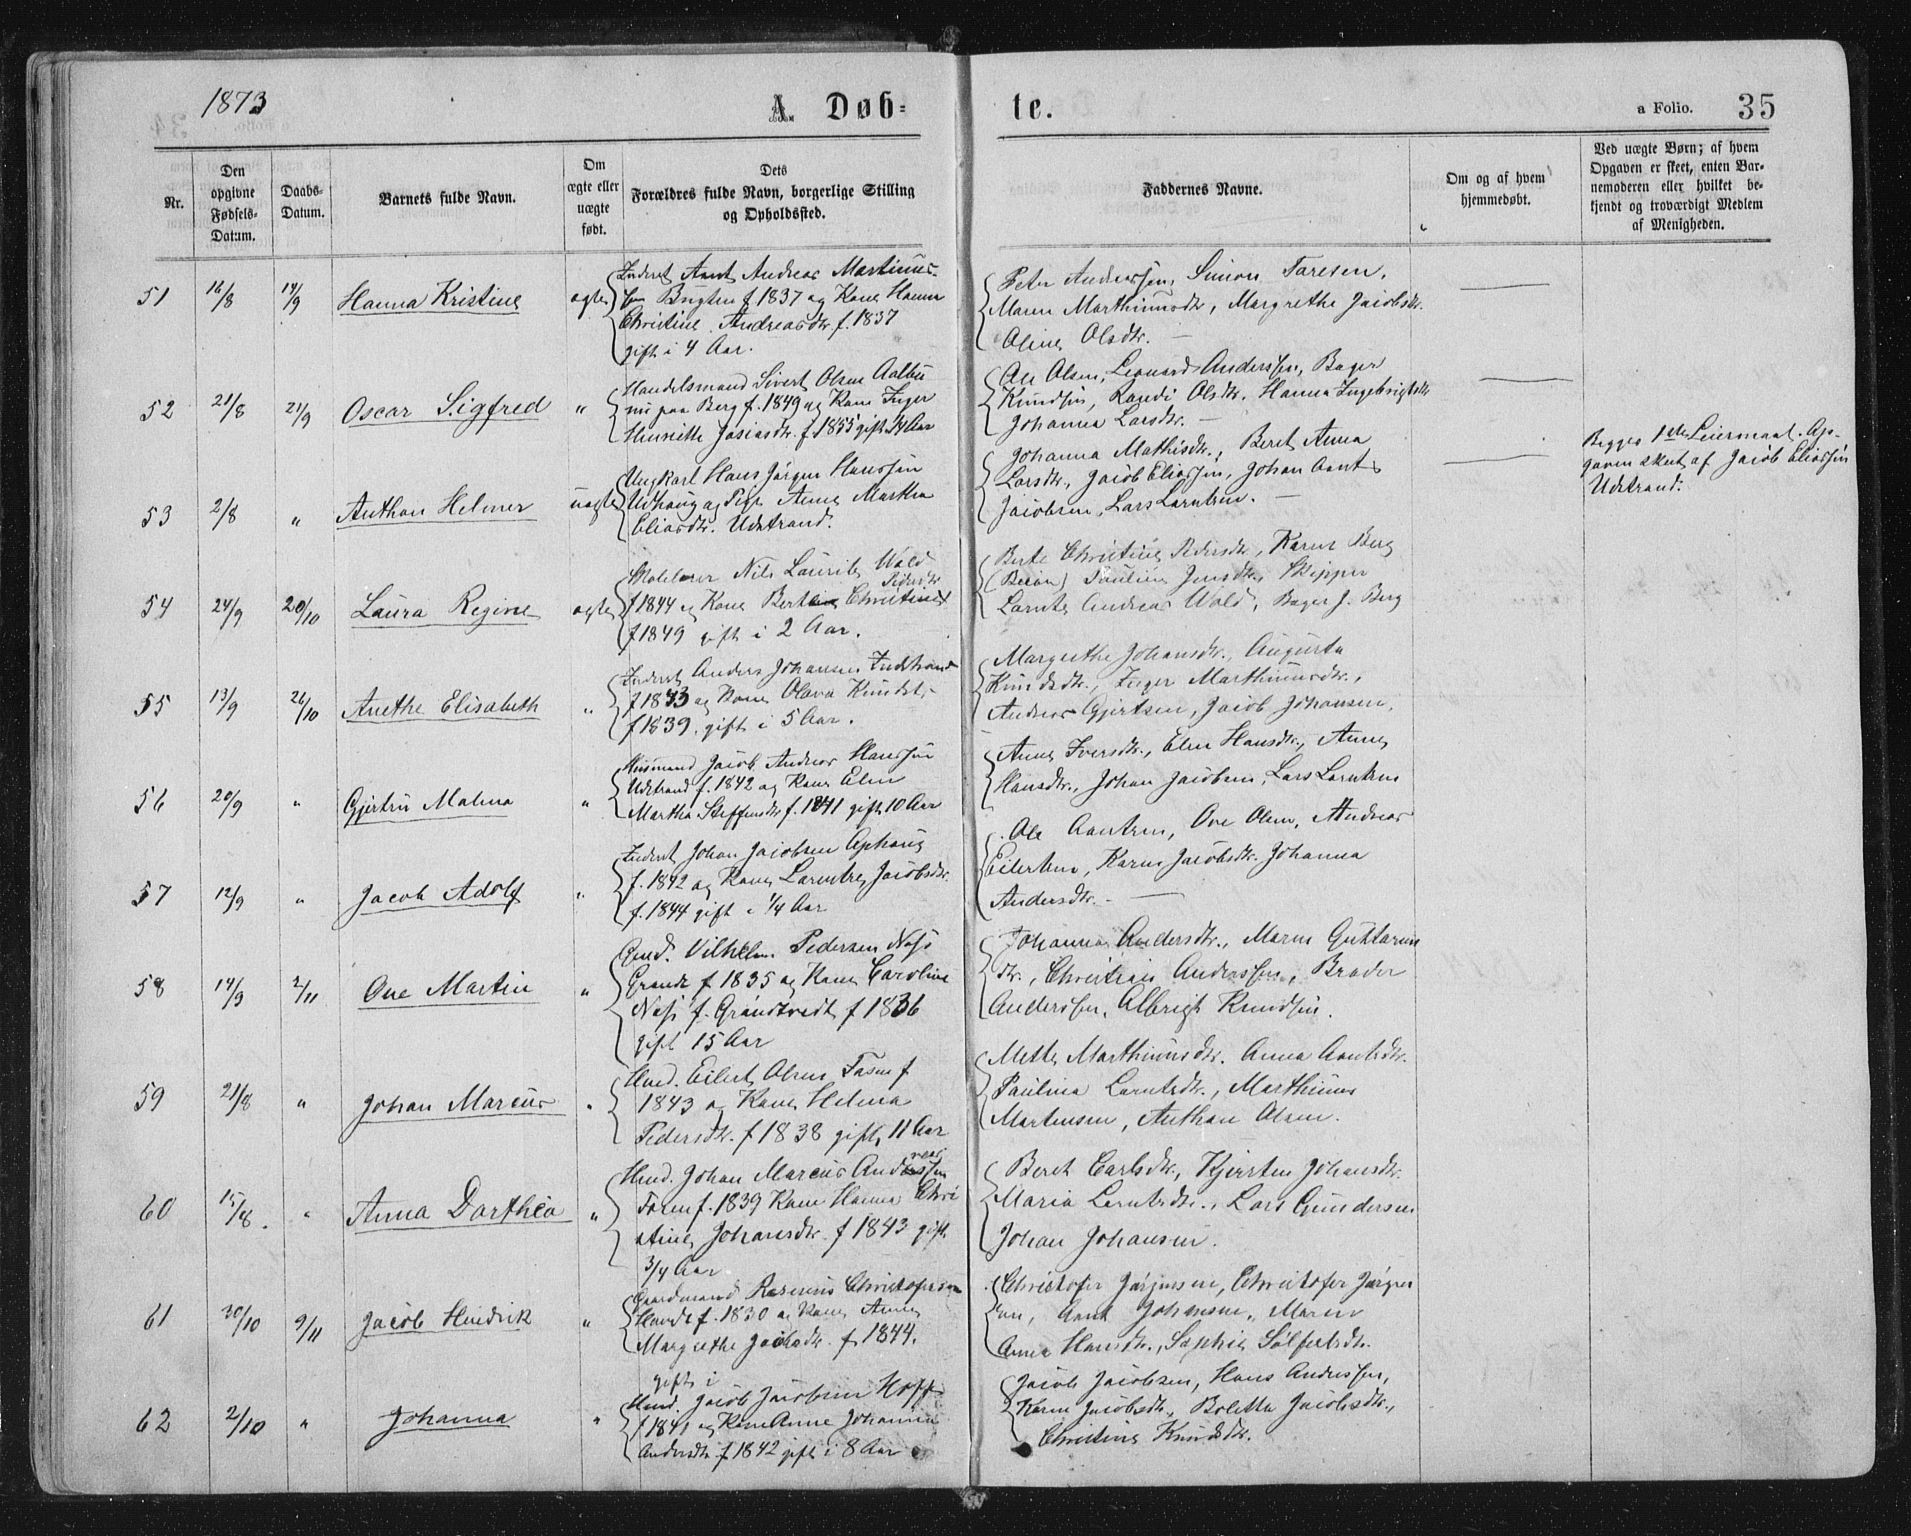 1873
A. Døb-
te.
a Folio. 35
Nr.
Den opgivne Fødsels-Datum.
Daabs-Datum.
Barnets fulde Navn.
Om ægte eller uægte født.
Dets Forældres fulde Navn, borgerlige Stilling og Opholdssted.
Faddernes Navne.
Om og af hvem hjemmedøbt.
Ved uægte Børn; af hvem Opgaven er skeet, enten Barnemoderen eller hvilket bekjendt og troværdigt Medlem af Menigheden.
51 16/8 14/9 Hanna Kristine ægte
Inderst Arnt Andreas Martinus-
sen f 1837 og Kone Hanna
Christine Andreasdtr. f. 1837
gift i 4 Aar.
Peter Anderssen, Simon Taresen,
Maren Marthinusdtr, Margrethe Jacobsdtr.
Oline Olsdtr. —
52 21/8 21/9 Oscar Sigfred "
Handelsmand Sivert Olsen Aalbu
nu paa Berg f. 1849 og Kone Inger
Henriette Josiasdtr. f. 1855 gift Aar
Ole Olsen, Leonard Anderssen, Bager
Knudsen, Randi Olsdtr. Hanna Ingebrigtsdtr
Johanna Larsdtr. —
53 2/8 " Anthon Helmer uægte
Ungkarl Hans Jörgen Hanssen
Udhaug og Pige Anne Martha
Eliasdtr. Udstrand.
Johanna Mathisdtr., Beret Anna
Larsdtr., Jacob Eliassen, Johan Arnt
Jacobsen, Lars Larntsen. —
Begges 1ste Leiermaal. Op-
gaven skeet af Jacob Eliassen
Udstrand.
54 24/9 20/10 Laura Regine ægte
Skolelærer Nils Laurits Wold
f 1844 og Kone Berte Christine Pedersdtr
f 1849 gift i 2 Aar.
Berte Christine Pedersdtr, Karen Berg
Pauline Jensdtr. Skipper
Larnts Andreas Wold, Bager J. Berg
55 13/9 26/10 Anethe Elisabeth "
Inderst Anders Johansen Indstrand
f 1843 og Kone Olava Knudsd.
f 1839. gift i 5 Aar.
Margrethe Johansdtr., Augusta
Knudsdtr., Inger Marthinusdtr.,
Andreas Gjertsen, Jacob Johansen.
56 20/9 " Gjertru Malena "
Husmand Jacob Andreas Hanssen
Udstrand f. 1842 og Kone Elen
Martha Steffensdtr f. 1841 gift 10 Aar
Anne Iversdtr., Elen Hansdtr., Anne
Hansdtr., Johan Jacobsen, Lars Larntsen
57 12/9 " Jacob Adolf "
Inderst Johan Jacobsen Ophaug
f. 1842 og Kone Larntse Jacobsdtr.
f. 1844 gift i 1/4 Aar
Ole Arntsen, Ove Olsen, Andreas
Eilertsen, Karen Jacobsdtr. Johanna
Andersdtr. —
58 14/9 2/11 Ove Martin "
Gmd. Vilhelm Pedersen Næss
Grande f 1835 og Kone Caroline
Næss f. Grandtvedt f 1836
gift 15 Aar
Johanna Andersdtr., Maren Guttorms
dtr., Christian Anderssen, Broder
Anderssen, Albrigt Knudsen.
59 21/8 " Johan Marcus "
Hmd. Eilert Olsen f
1843 og Kone Helena
Pedersdtr. f 1838 gift 11 Aar
Mette Marthinusdtr. Anna Arntsdtr.
Paulina Larntsdtr., Marthinus
Martensen, Anthon Olsen.
60 15/8 " Anna Dorthea "
Hmd. Johan Marcus Andreassen
f. 1839 Kone Hanna Chri
stine Johansdtr. f 1843 gift
3/4 Aar
Beret Carlsdtr., Kjersten Johansdtr.
Maria Larntsdtr., Lars Gundersen
Johan Johansen.
61 30/10 9/11 Jacob Hendrik "
Gaardmand Rasmus Christophersen
f. 1830 og Kone Anne
Margrethe Jacobsdtr. f 1844.
gift i
Christofer Jörgensen, Christofer Jörgen
sen, Arnt Johansen, Maren
Anna Hansdtr., Sophie Sölfestsdtr.
62 2/10 " Johanna "
Hmd. Jacob Jacobsen Hoff
f 1841 og Kone Anne Johanna
Andersdtr f 1842 gift i 8 Aar
Jacob Jacobsen, Hans Anderssen,
Karen Jacobsdtr., Boletta Jacobsdtr.,
Christine Knudsdtr.